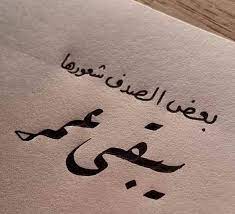 بعض الصدف شعورها
يبقى عمر